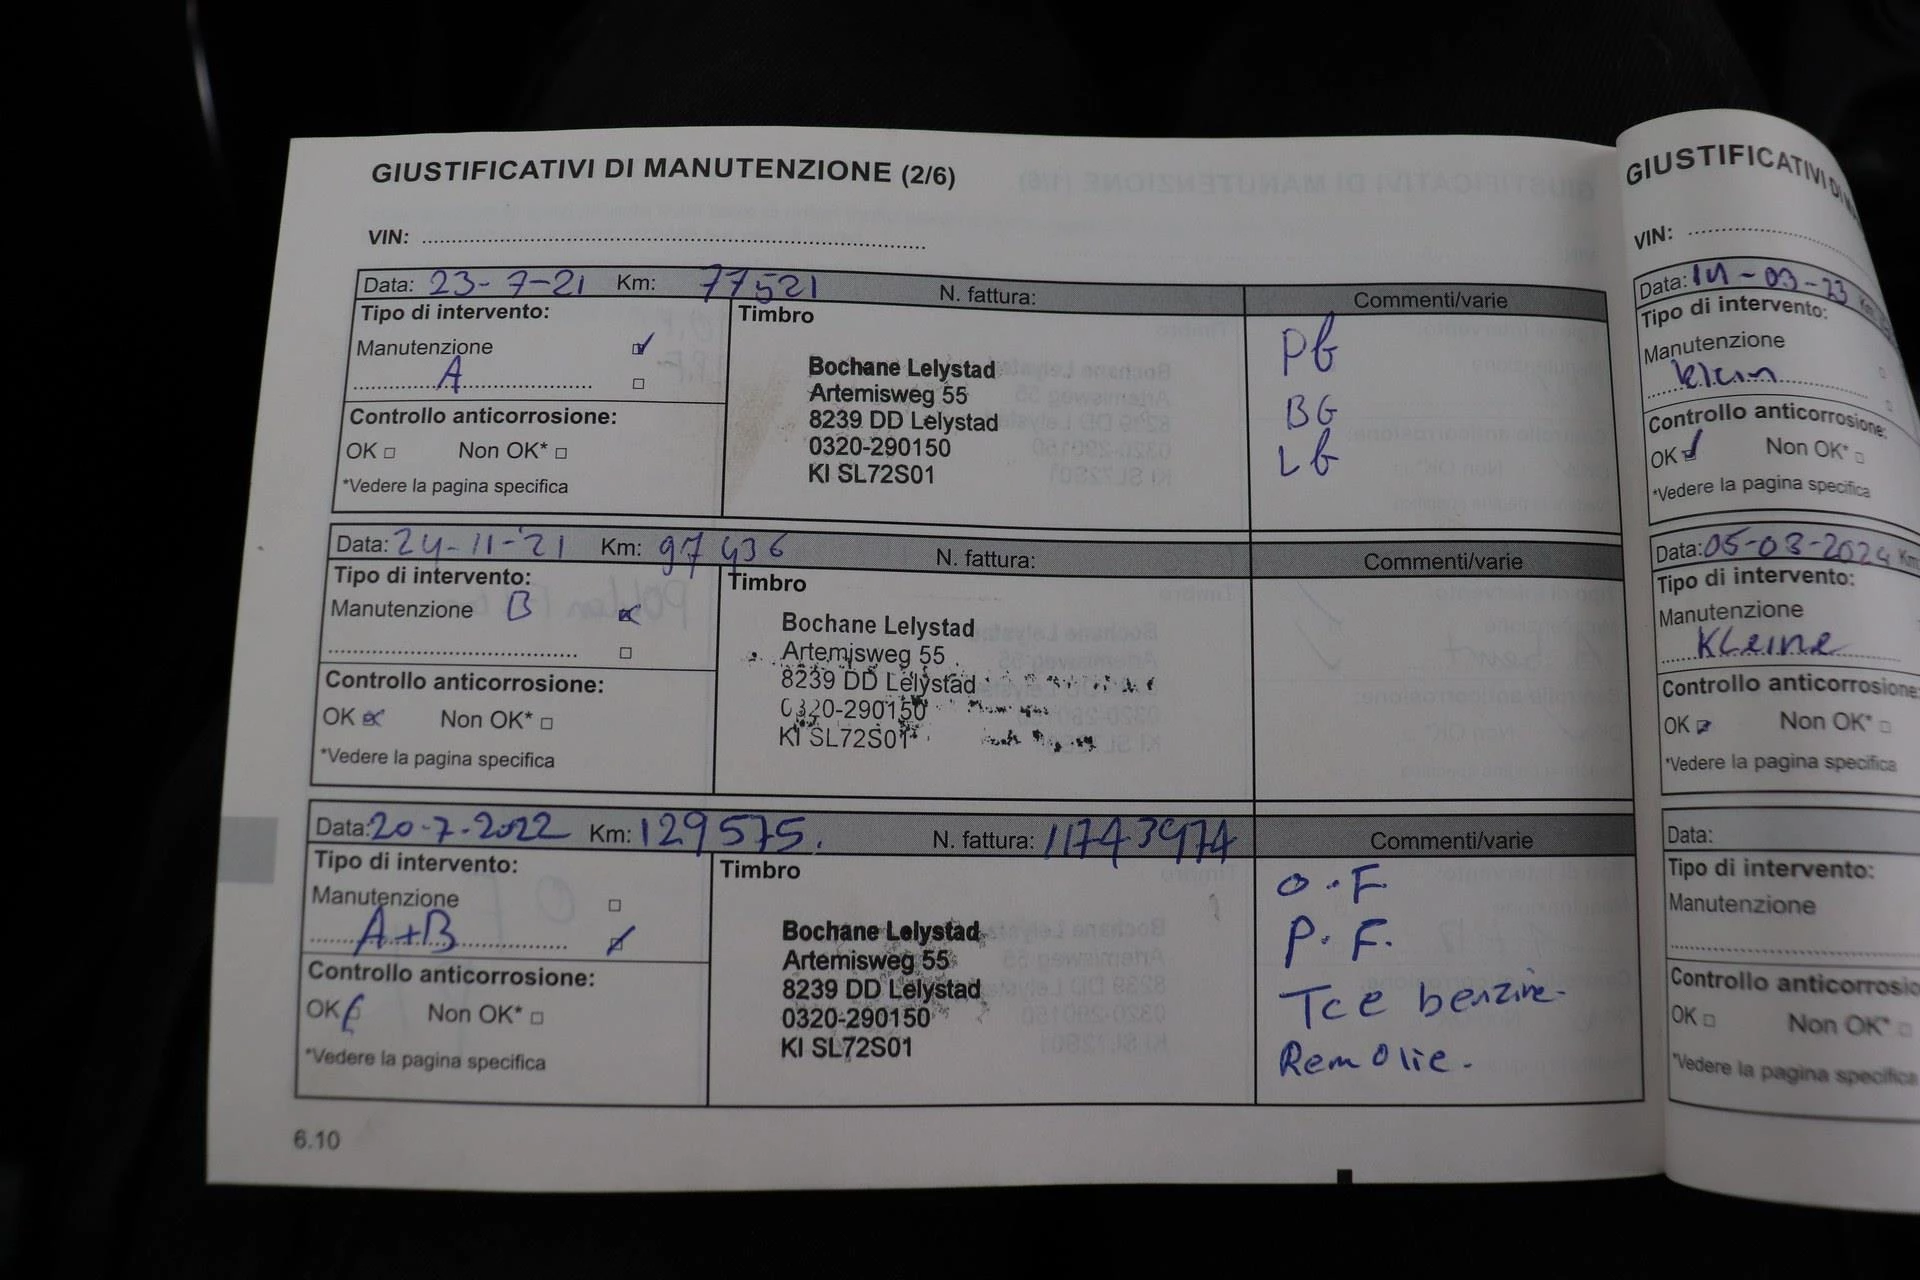 GIUSTIFICATIVI DI MANUTENZIONE (2/6)
VIN:
Data: 23-7-21 Km: 77521 N. fattura: Commenti/varie
Tipo di intervento:
Manutenzione
A
Controllo anticorrosione:
OK Non OK*
*Vedere la pagina specifica
Timbro
Bochane Lelystad
Artemisweg 55
8239 DD Lelystad
0320-290150
KI SL72S01
BG
Data: 24-11-'21 Km: 97436 N. fattura: Commenti/varie
Tipo di intervento:
Manutenzione B
Controllo anticorrosione:
OK Non OK*
*Vedere la pagina specifica
Timbro
Bochane Lelystad
Artemisweg 55
8239 DD Lelystad
0320-290150
KI SL72S01
Data: 20-7-2022 Km: 129575. N. fattura: 11743974 Commenti/varie
Tipo di intervento:
Manutenzione
A+B
Controllo anticorrosione:
OK Non OK*
*Vedere la pagina specifica
Timbro
Bochane Lelystad
Artemisweg 55
8239 DD Lelystad
0320-290150
KI SL72S01
O.F
P.F.
Tce benzine.
Remolie.
6.10
GIUSTIFICATIVI
VIN:
Data: 14-03-23
Tipo di intervento:
Manutenzione
klein
Controllo anticorrosione:
OK Non OK*
*Vedere la pagina specifica
Data: 05-03-2024 Km
Tipo di intervento:
Manutenzione
Kleine
Controllo anticorrosione:
OK Non OK*
*Vedere la pagina specifica
Data:
Tipo di intervento:
Manutenzione
Controllo
OK Non OK*
*Vedere la pagina specifica